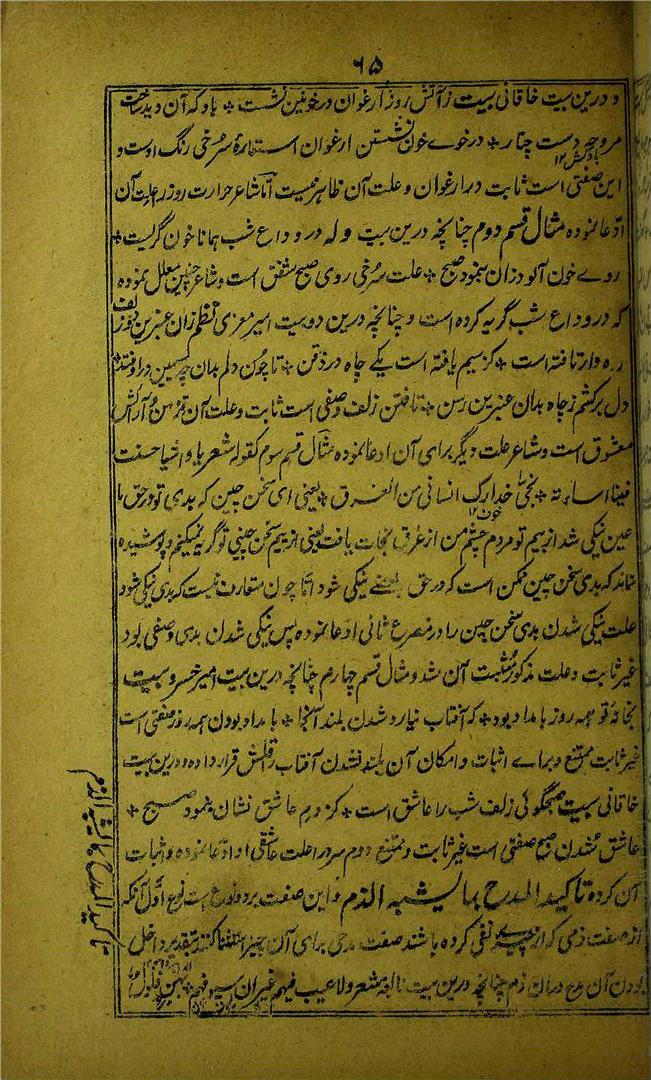 ۶۵
و درین بیت خاقانی بیت ز آتش روز ارغوان در خوئین نشست * باد که آن دید ساخت
مروحه دست چنار * در خوے خون نشستن ارغوان استعارهٔ سرخی رنگ اوست و
بادکش ۱۲
این صفتی است ثابت در ارغوان و علت آن ظاهر نیست امّا شاعر حرارت روز را علت آن
ادّعا نموده مثال قسم دوم چنانچه درین بیت وله در وداع شب همانا خون گریست *
روے خون آلود زان بنمود صبح * علت سُرخی روی صبح شفق است و شاعر چنین معلل نموده
که در وداع شب گریه کرده است و چنانچه درین دو بیت امیر معزی نظم زان عنبرین دو زلف
ره دار تافته است * کز سیم یافته است یکے چاه در ذقن * تا چون دلم بدان چه سیمین در اوفتد *
دل بر کشم ز چاه بدان عنبرین رسن * تافتن زلف وصفی است ثابت و علت آن آرائش
معشوق است و شاعر علت دیگر برای آن ادعا نموده مثال قسم سوم کقوله شعر یا واشیا حسنت
فینا اساءته * نجی حذارک انسانی من الغرق * یعنی ای سخن چین که بدی تو در حق ما
عین نیکی شد از بیم تو مردم چشم من از غرق نجات یافت یعنی از بیم سخن چینی تو گریه نمیکنم و پوشیده
نماند که بدی سخن چین ممکن است که در حق بعضے نیکی شود امّا چون متعارف نیست که بدی نیکی شود
علت نیکی شدن بدی سخن چین را در مصرع ثانی ادعا نموده پس نیکی شدن بدی وصفی بود
غیر ثابت و علت مذکور مُثبت آن شد و مثال قسم چهارم چنانچه درین بیت امیر خسرو بیت
بخانهٔ تو همه روز بامداد بود * که آفتاب نیارد شدن بلند آنجا * بامداد بودن همه روز صفتی است
غیر ثابت ممتنع و براے اثبات و امکان آن بلند نشدن آفتاب را علتش قرار داده و درین بیت
خاقانی بیت صبح گوئی زلف شب را عاشق است * کز دم عاشق نشان بنمود صبح *
عاشق شدن صبح صفتی است غیر ثابت و ممتنع و دم سرد را علت عاشقی او ادّعا نموده و اثبات
آن کرده تاکید المدح بما یشبه الذم و این صفت بر دو نوع است نوع اوّل آنکه
از صفت ذمی که از چیزے نفی کرده باشند صفت مدحی برای آن چیز استثنا کنند بتقدیر داخل
بودن آن مدح دران ذم چنانچه درین بیت نابغه شعر ولا عیب فیهم غیر ان سیوفهم * بهن فلول